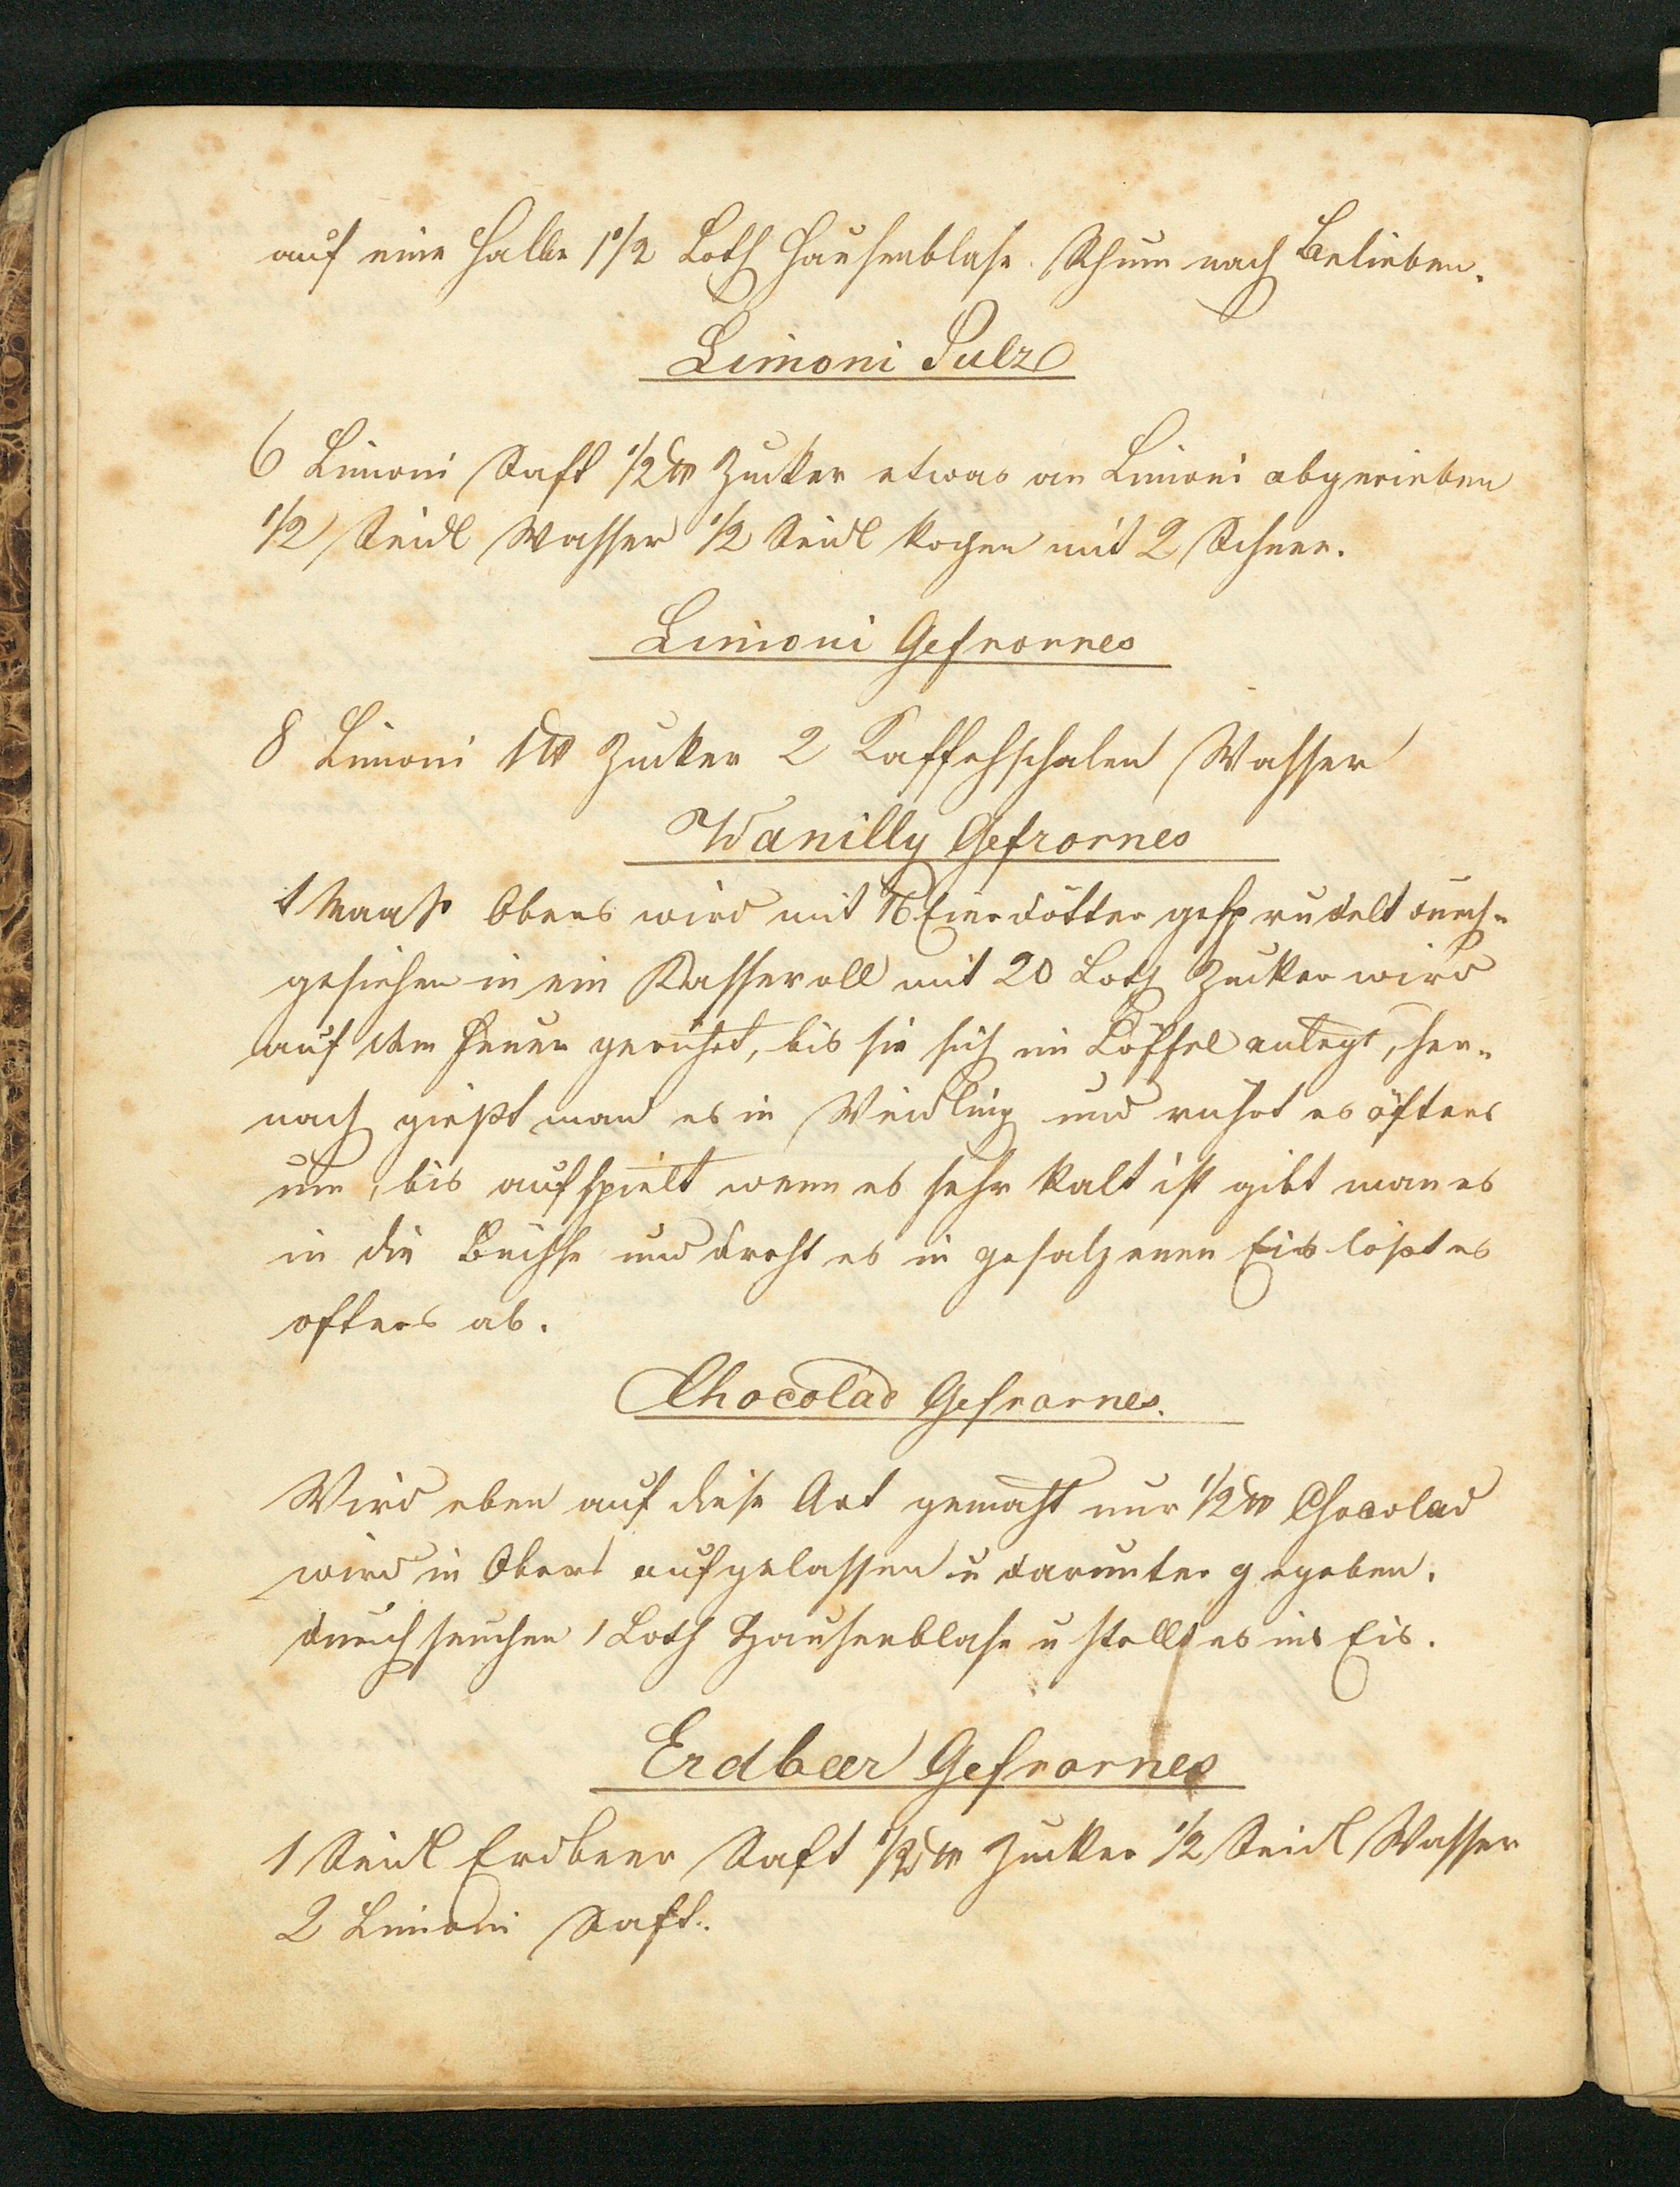 auf eine Halbe 1 1/2 Loth Hausenblase. Rhum nach Belieben.
Limoni Sulz
6 Limoni Saft 1/2 ℔ Zucker etwas an Limoni abgerieben
1/2 Seidl Wasser 1/2 Seidl kochen mit 2 Schnee.
Limoni Gefrornes
8 Limoni 1 ℔ Zucker 2 Kaffehschalen Wasser
Wanilly Gefrornes
1 Maaß Obers wird mit Eierdötter gesprudelt durch-
geseihen in ein Kasseroll mit 20 Loth Zucker wird
auf dem Feuer gerührt, bis sie sich im Löffel anlegt, her-
nach gießt man es in Weidling und rührt es öfters
um, bis aufspielt wenn es sehr kalt ist gibt man es
in die Buchse und dreht es in gesalzenen Eis löst es
ofters ab.
Chocolad Gefrornes.
Wird eben auf diese Art gemacht nur 1/2 ℔ Chocolad
wird in Obers aufgelassen u darunter gegeben.
durchseuhen 1 Loth Hausenblase u stellt es ins Eis.
Erdbeer Gefrornes
1 Seidl Erdbeer Saft 1/2 ℔ Zucker 1/2 Seidl Wasser
2 Limoni Saft.